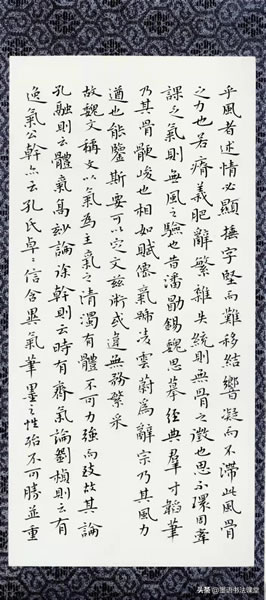 乎風者述情必顯捶字堅而難移結響凝而不滯此風骨
之力也若瘠義肥辭繁雜失統則無骨之徵也思不環周牽
課乏氣則無風之驗也昔潘勖錫魏思摹經典羣才韜筆
乃其骨髓峻也相如賦僊氣號凌雲蔚爲辭宗乃其風力
遒也能鑒斯要可以定文茲術或違無務繁采
故魏文稱文以氣爲主氣之清濁有體不可力強而致故其論
孔融則云體氣高妙論徐幹則云時有齊氣論劉楨則云有
逸氣公幹亦云孔氏卓々信含異氣筆墨之性殆不可勝並重
头条 @墨语书法课堂